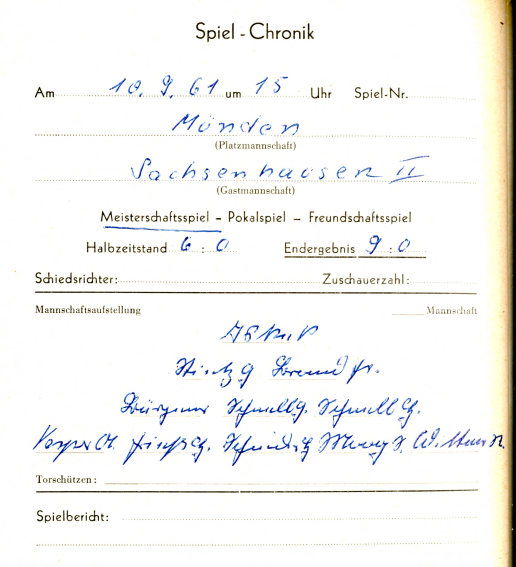 Spiel-Chronik
Am 10. 9. 61 um 15 Uhr Spiel-Nr.
Münden
(Platzmannschaft)
Sachsenhausen II
(Gastmannschaft)
Meisterschaftsspiel - Pokalspiel - Freundschaftsspiel
Halbzeitstand 6 : 0 Endergebnis 9 : 0
Schiedsrichter: Zuschauerzahl:
Mannschaftsaufstellung Mannschaft
Schnell g. Schnell
Torschützen:
Spielbericht: